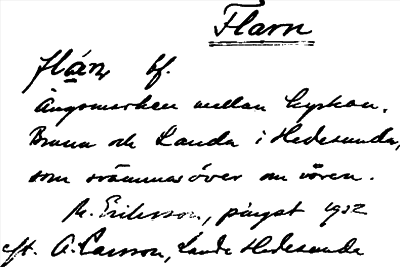 Flarn
flá̲n, bf.
Ängsmarken mellan kyrkan,
Brunn och Landa i Hedesunda,
som svämmas över om våren.
M. Eriksson, pingst 1932
eft. A. Larsson, Landa Hedesunda